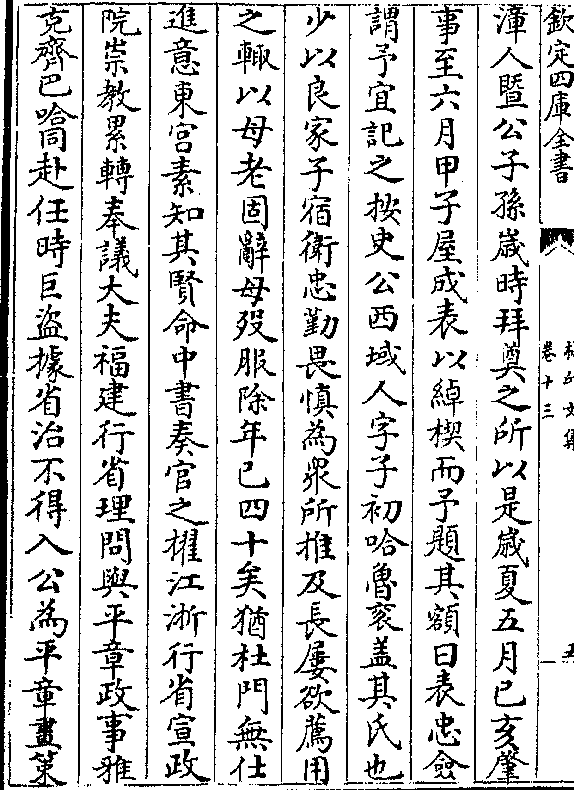 欽定四庫全書
卷十三
漳人暨公子孫歲時拜奠之所以是歲夏五月己亥肇
事至六月甲子屋成表以綽楔而予題其額曰表忠僉
謂予宜記之按史公西域人字子初哈魯衮盖其氏也
少以良家子宿衛忠勤畏慎為衆所推及長屢欲薦用
之輙以母老固辭母歿服除年已四十矣猶杜門無仕
進意東宫素知其賢命中書奏官之擢江浙行省宣政
院崇教累轉奉議大夫福建行省理問與平章政事雅
克齊巴哈同赴任時巨盜據省治不得入公為平章畫策